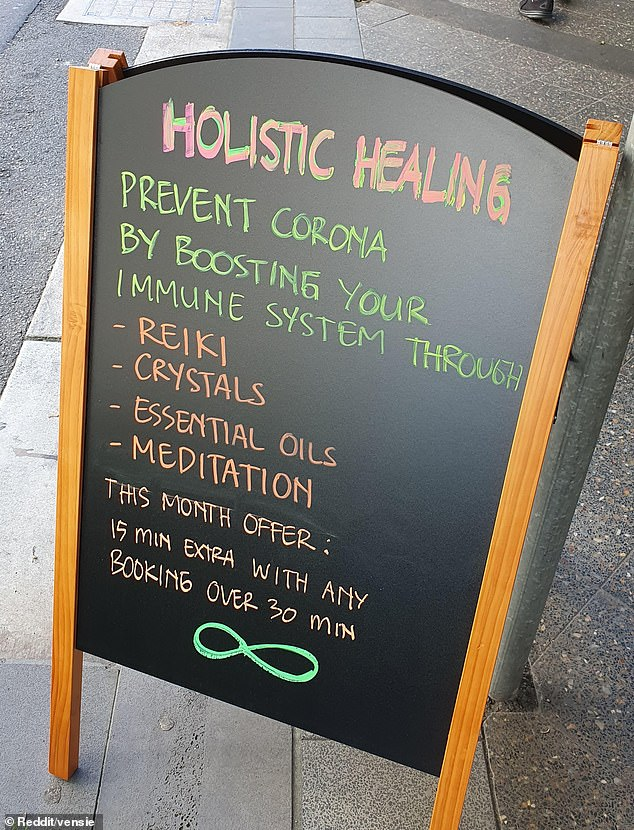 HOLISTIC HEALING
PREVENT CORONA
BY BOOSTING YOUR
IMMUNE SYSTEM THROUGH
- REIKI
- CRYSTALS
- ESSENTIAL OILS
- MEDITATION
THIS MONTH OFFER:
15 MIN EXTRA WITH ANY
BOOKING OVER 30 MIN
© Reddit/vensie